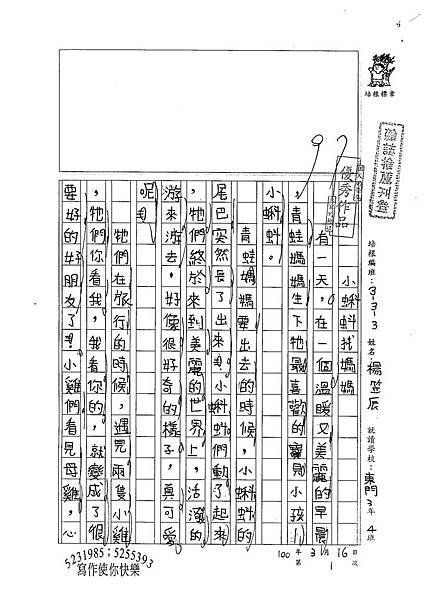 培根標章
翰誌捨薦刊登
優秀作品
97
培根編班:3-3-3 姓名:楊笠辰 就讀學校:東門3年4班
100年3月16日
第1次
小蝌蚪找媽媽
有一天,在一個溫暖又美麗的早晨
,青蛙媽媽生下牠最喜歡的寶貝小孩——
小蝌蚪。
青蛙媽媽要出去的時候,小蝌蚪的
尾巴突然長了出來!小蝌蚪們動了起來
,牠們終於來到美麗的世界上,活潑的
游來游去,好像很好奇的樣子,真可愛
呢!
牠們在旅行的時候,遇見兩隻小雞
,牠們你看我,我看你的,就變成了很
要好的好朋友了!小雞們看見母雞,心
5231985;5255393
寫作使你快樂